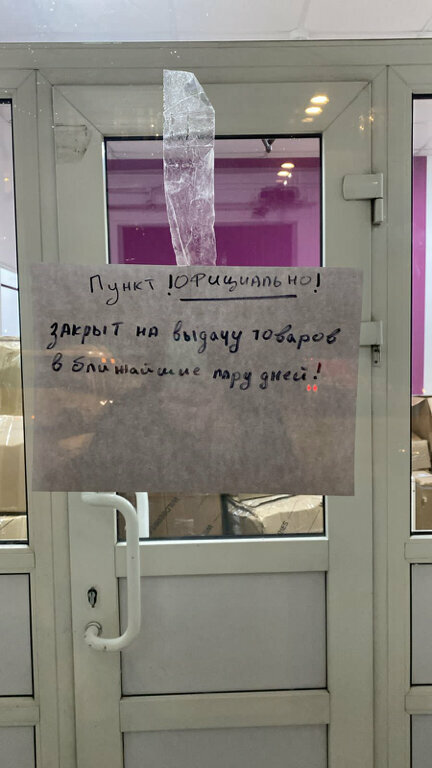 Пункт !ОФИЦИАЛЬНО!
закрыт на выдачу товаров
в ближайшие пару дней!